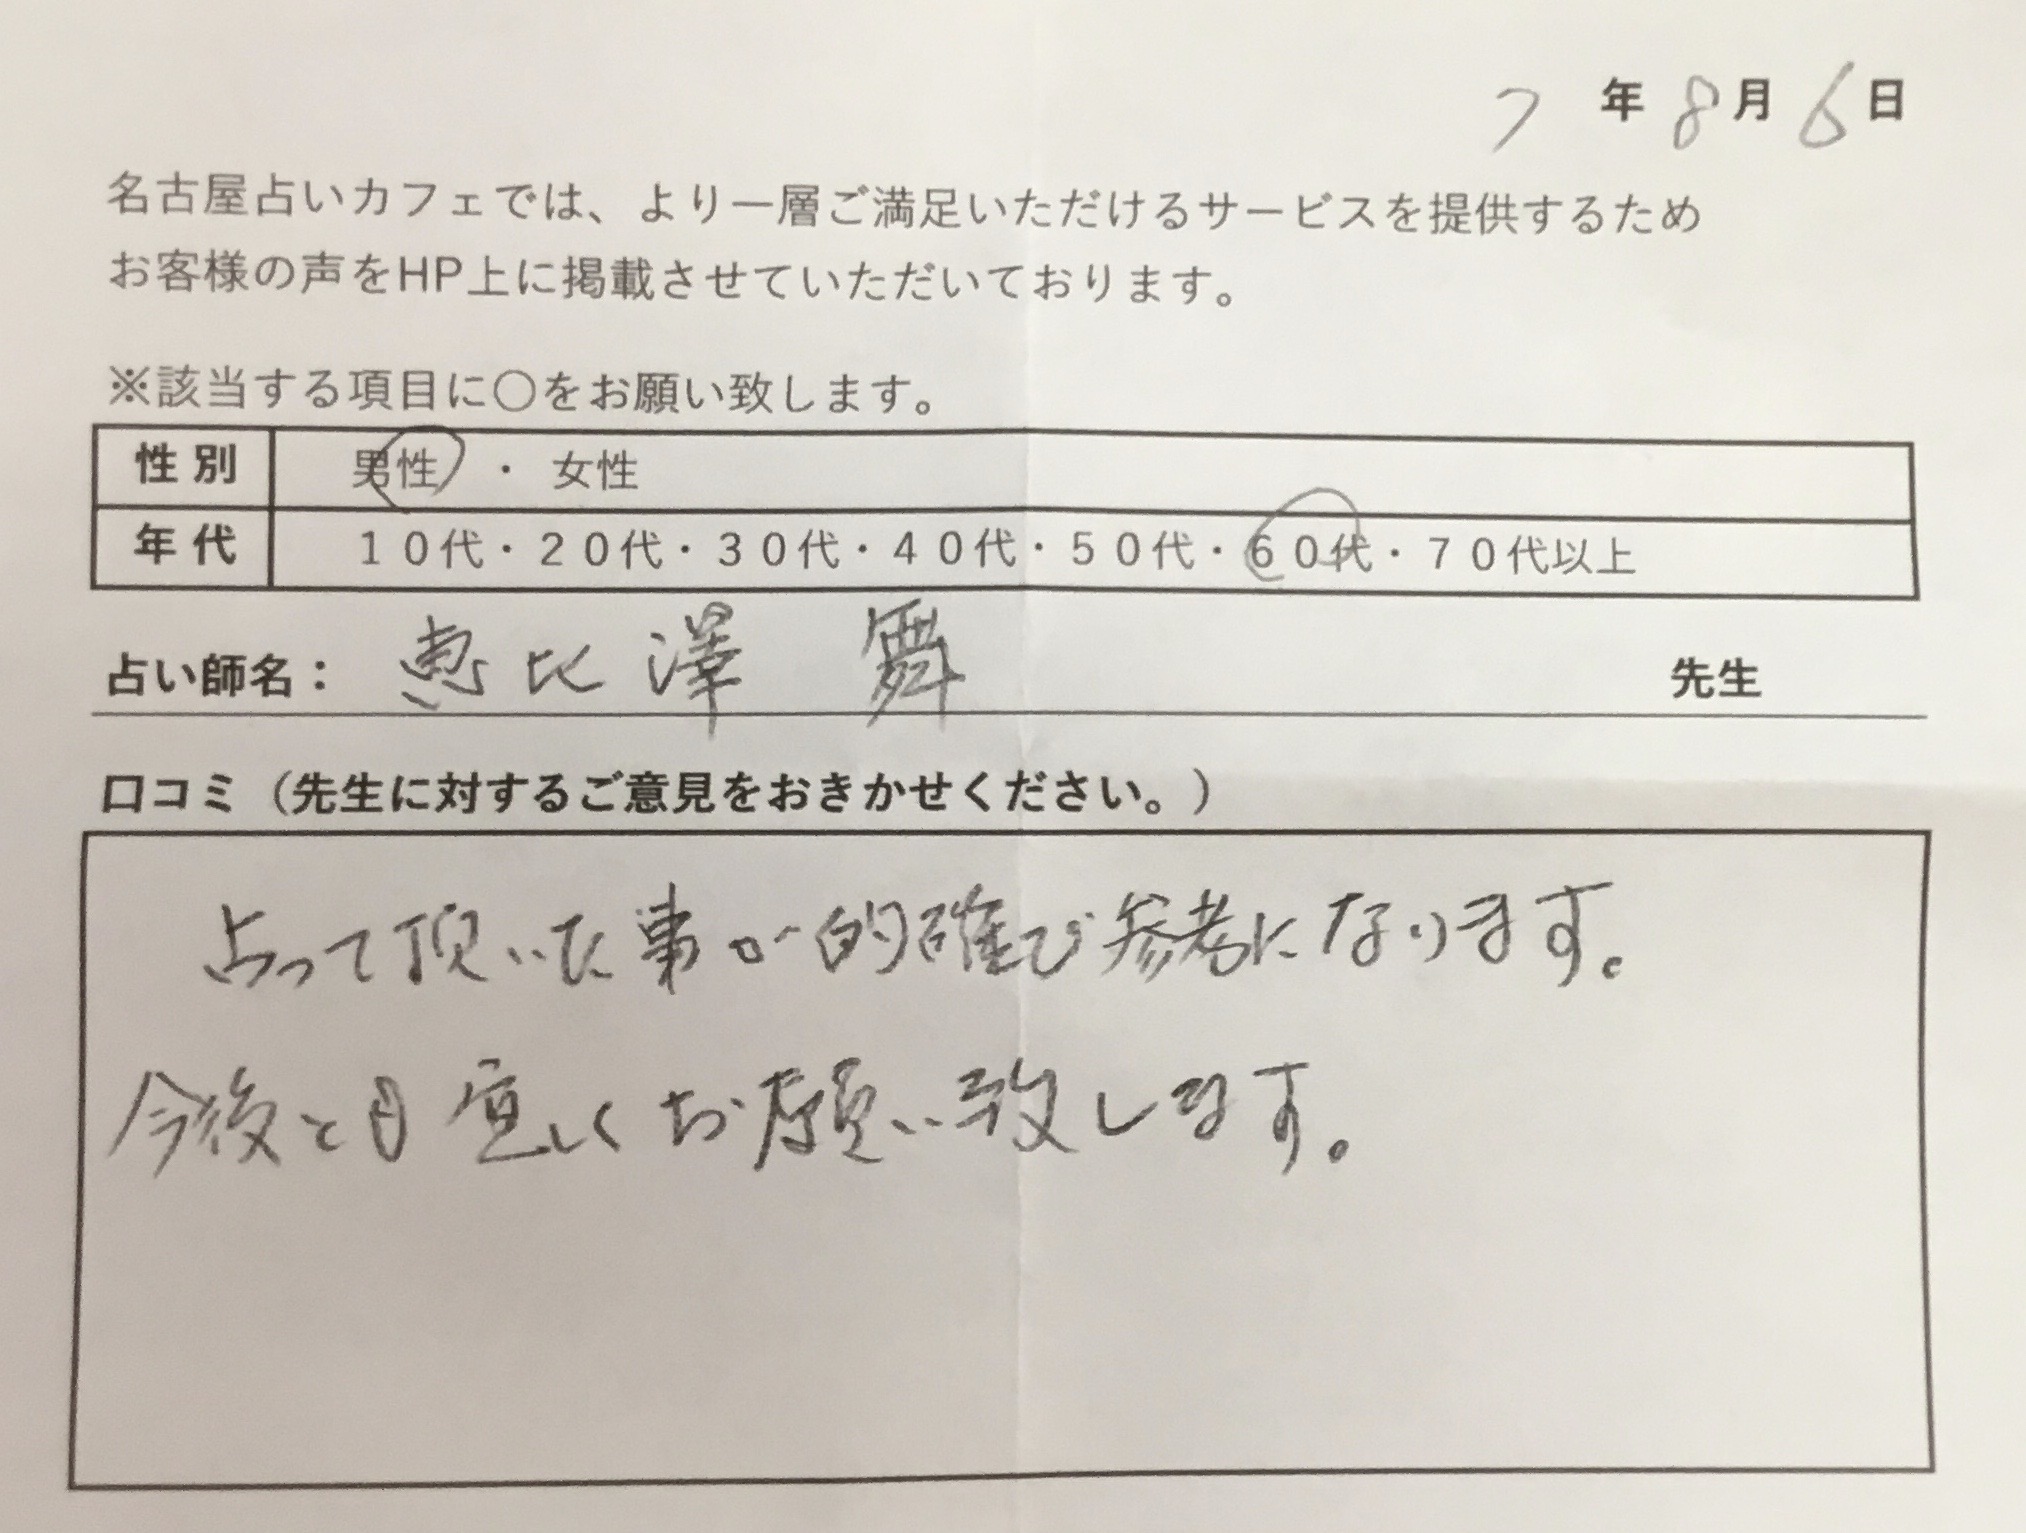 7年8月6日
名古屋占いカフェでは、より一層ご満足いただけるサービスを提供するため
お客様の声をHP上に掲載させていただいております。
※該当する項目に〇をお願い致します。
性別 男性 ・ 女性
年代 10代・20代・30代・40代・50代・60代・70代以上
占い師名： 恵比澤 舞 先生
口コミ（先生に対するご意見をおきかせください。）
占って頂いた事が的確で参考になります。
今後とも宜しくお願い致します。